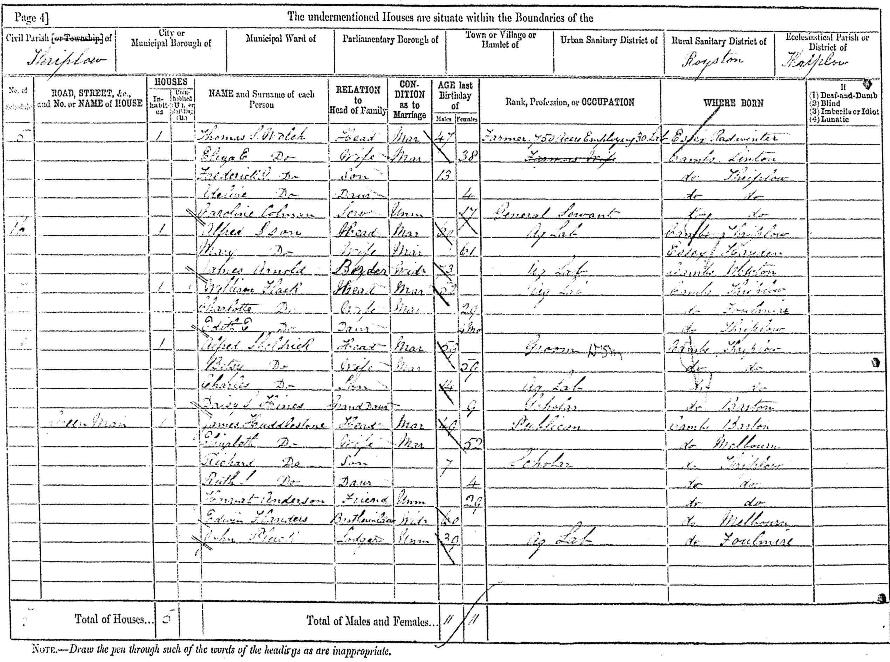 Page 4] The undermentioned Houses are situate within the Boundaries of the
Civil Parish [or Township] of City or Municipal Borough of Municipal Ward of Parliamentary Borough of Town or Village or Hamlet of Urban Sanitary District of Rural Sanitary District of Ecclesiastical Parish or District of
Thriplow Royston Thriplow
No. of Schedule ROAD, STREET, &c., and No. or NAME of HOUSE HOUSES In-habited NAME and Surname of each Person RELATION to Head of Family CON-DITION as to Marriage AGE last Birthday of Males Females Rank, Profession, or OCCUPATION WHERE BORN If (1) Deaf-and-Dumb (2) Blind (3) Imbecile or Idiot (4) Lunatic
5 1 Thomas S. Head Mar 47 Farmer 750 Acres Employing 30 Lab Essex Radwinter
Eliza E. Do Wife Mar 38 Farmers Wife Cambs Linton
Frederick Do Son 13 do Thriplow
Do Daur 4 do do
Caroline Colman Serv Unm 17 General Servant do do
1 Alfred Ison Head Mar Ag Lab Cambs Thriplow
Mary Do Wife Mar 61 Essex
James Arnold Boarder Widr Ag Lab Cambs
1 William Flack Head Mar Ag Lab Cambs Thriplow
Charlotte Do Wife Mar 29 do Foulmire
Edith E Do Daur do Thriplow
1 Alfred Head Mar Groom Cambs Thriplow
Betsy Do Wife Mar 59 do do
Charles Do Son Ag Lab do do
Daisy S. Hines Grand Daur 9 Scholar do Barton
Green Man 1 James Huddlestone Head Mar Publican Cambs Barton
Elizabeth Do Wife Mar 52 do Melbourn
Richard Do Son 7 Scholar do Thriplow
Ruth Do Daur 4 do do
Anderson Friend Unm 29 do do
Edwin Flanders Brother in Law Widr 60 do Melbourn
John Lodger Unm 30 Ag Lab do Foulmire
5 Total of Houses... 5 Total of Males and Females... 11 11
NOTE.—Draw the pen through such of the words of the headings as are inappropriate.